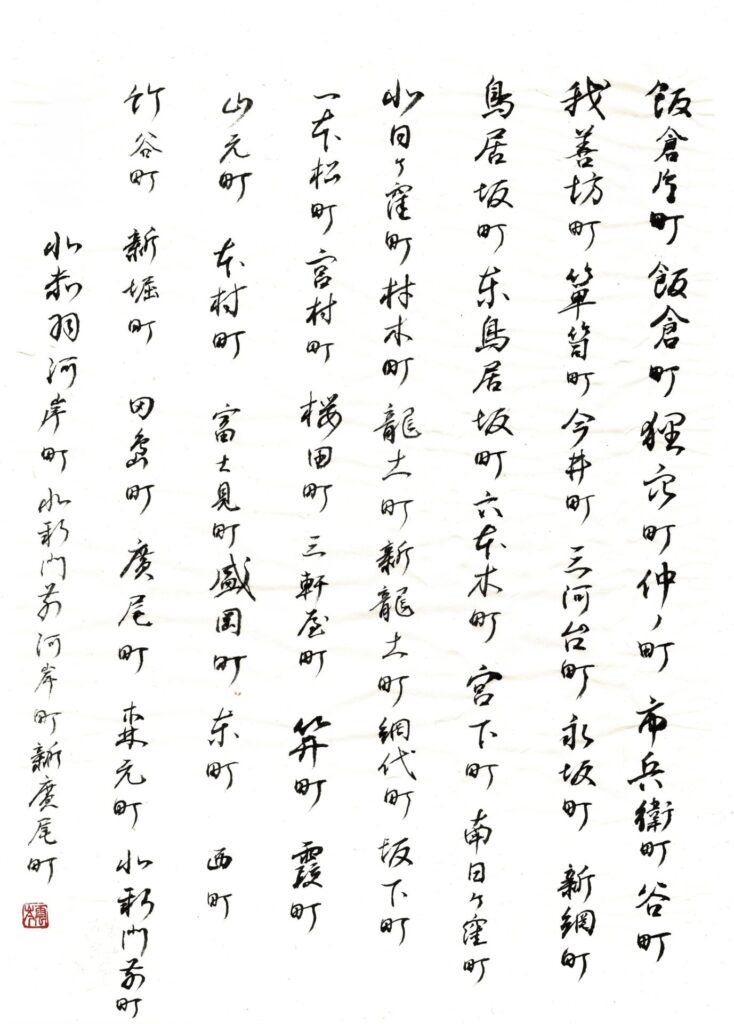 飯倉片町 飯倉町 狸穴町 仲ノ町 市兵衛町 谷町
我善坊町 箪笥町 今井町 三河台町 永坂町 新網町
鳥居坂町 東鳥居坂町 六本木町 宮下町 南日ヶ窪町
北日ヶ窪町 材木町 龍土町 新龍土町 網代町 坂下町
一本松町 宮村町 桜田町 三軒屋町 笄町 霞町
山元町 本村町 富士見町 盛岡町 東町 西町
竹谷町 新堀町 田島町 廣尾町 森元町 北新門前町
北赤羽河岸町 北新門前河岸町 新廣尾町